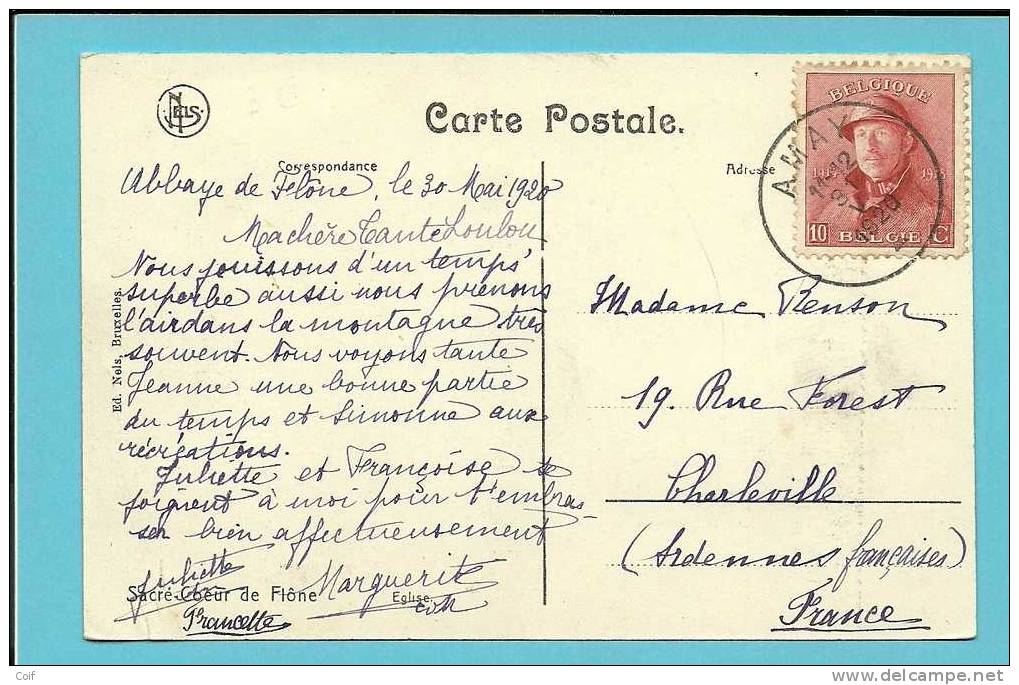 NELS
Carte Postale.
Correspondance
Adresse
BELGIQUE
1914 1918
10 BELGIE C
AMAY
1920
Abbaye de Flône, le 30 Mai 1920
Ma chère Tante Loulou
Nous jouissons d'un temps
superbe aussi nous prenons
l'air dans la montagne très
souvent. Nous voyons tante
Jeanne une bonne partie
du temps et Simonne aux
récréations.
Juliette et Françoise se
joignent à moi pour t'embras-
ser bien affectueusement
Juliette
Marguerite
Francette
Sacré-Coeur de Flône
Eglise.
Ed. Nels, Bruxelles.
Madame Renson
19. Rue Forest
Charleville
(Ardennes françaises)
France
Coif
delcampe.net